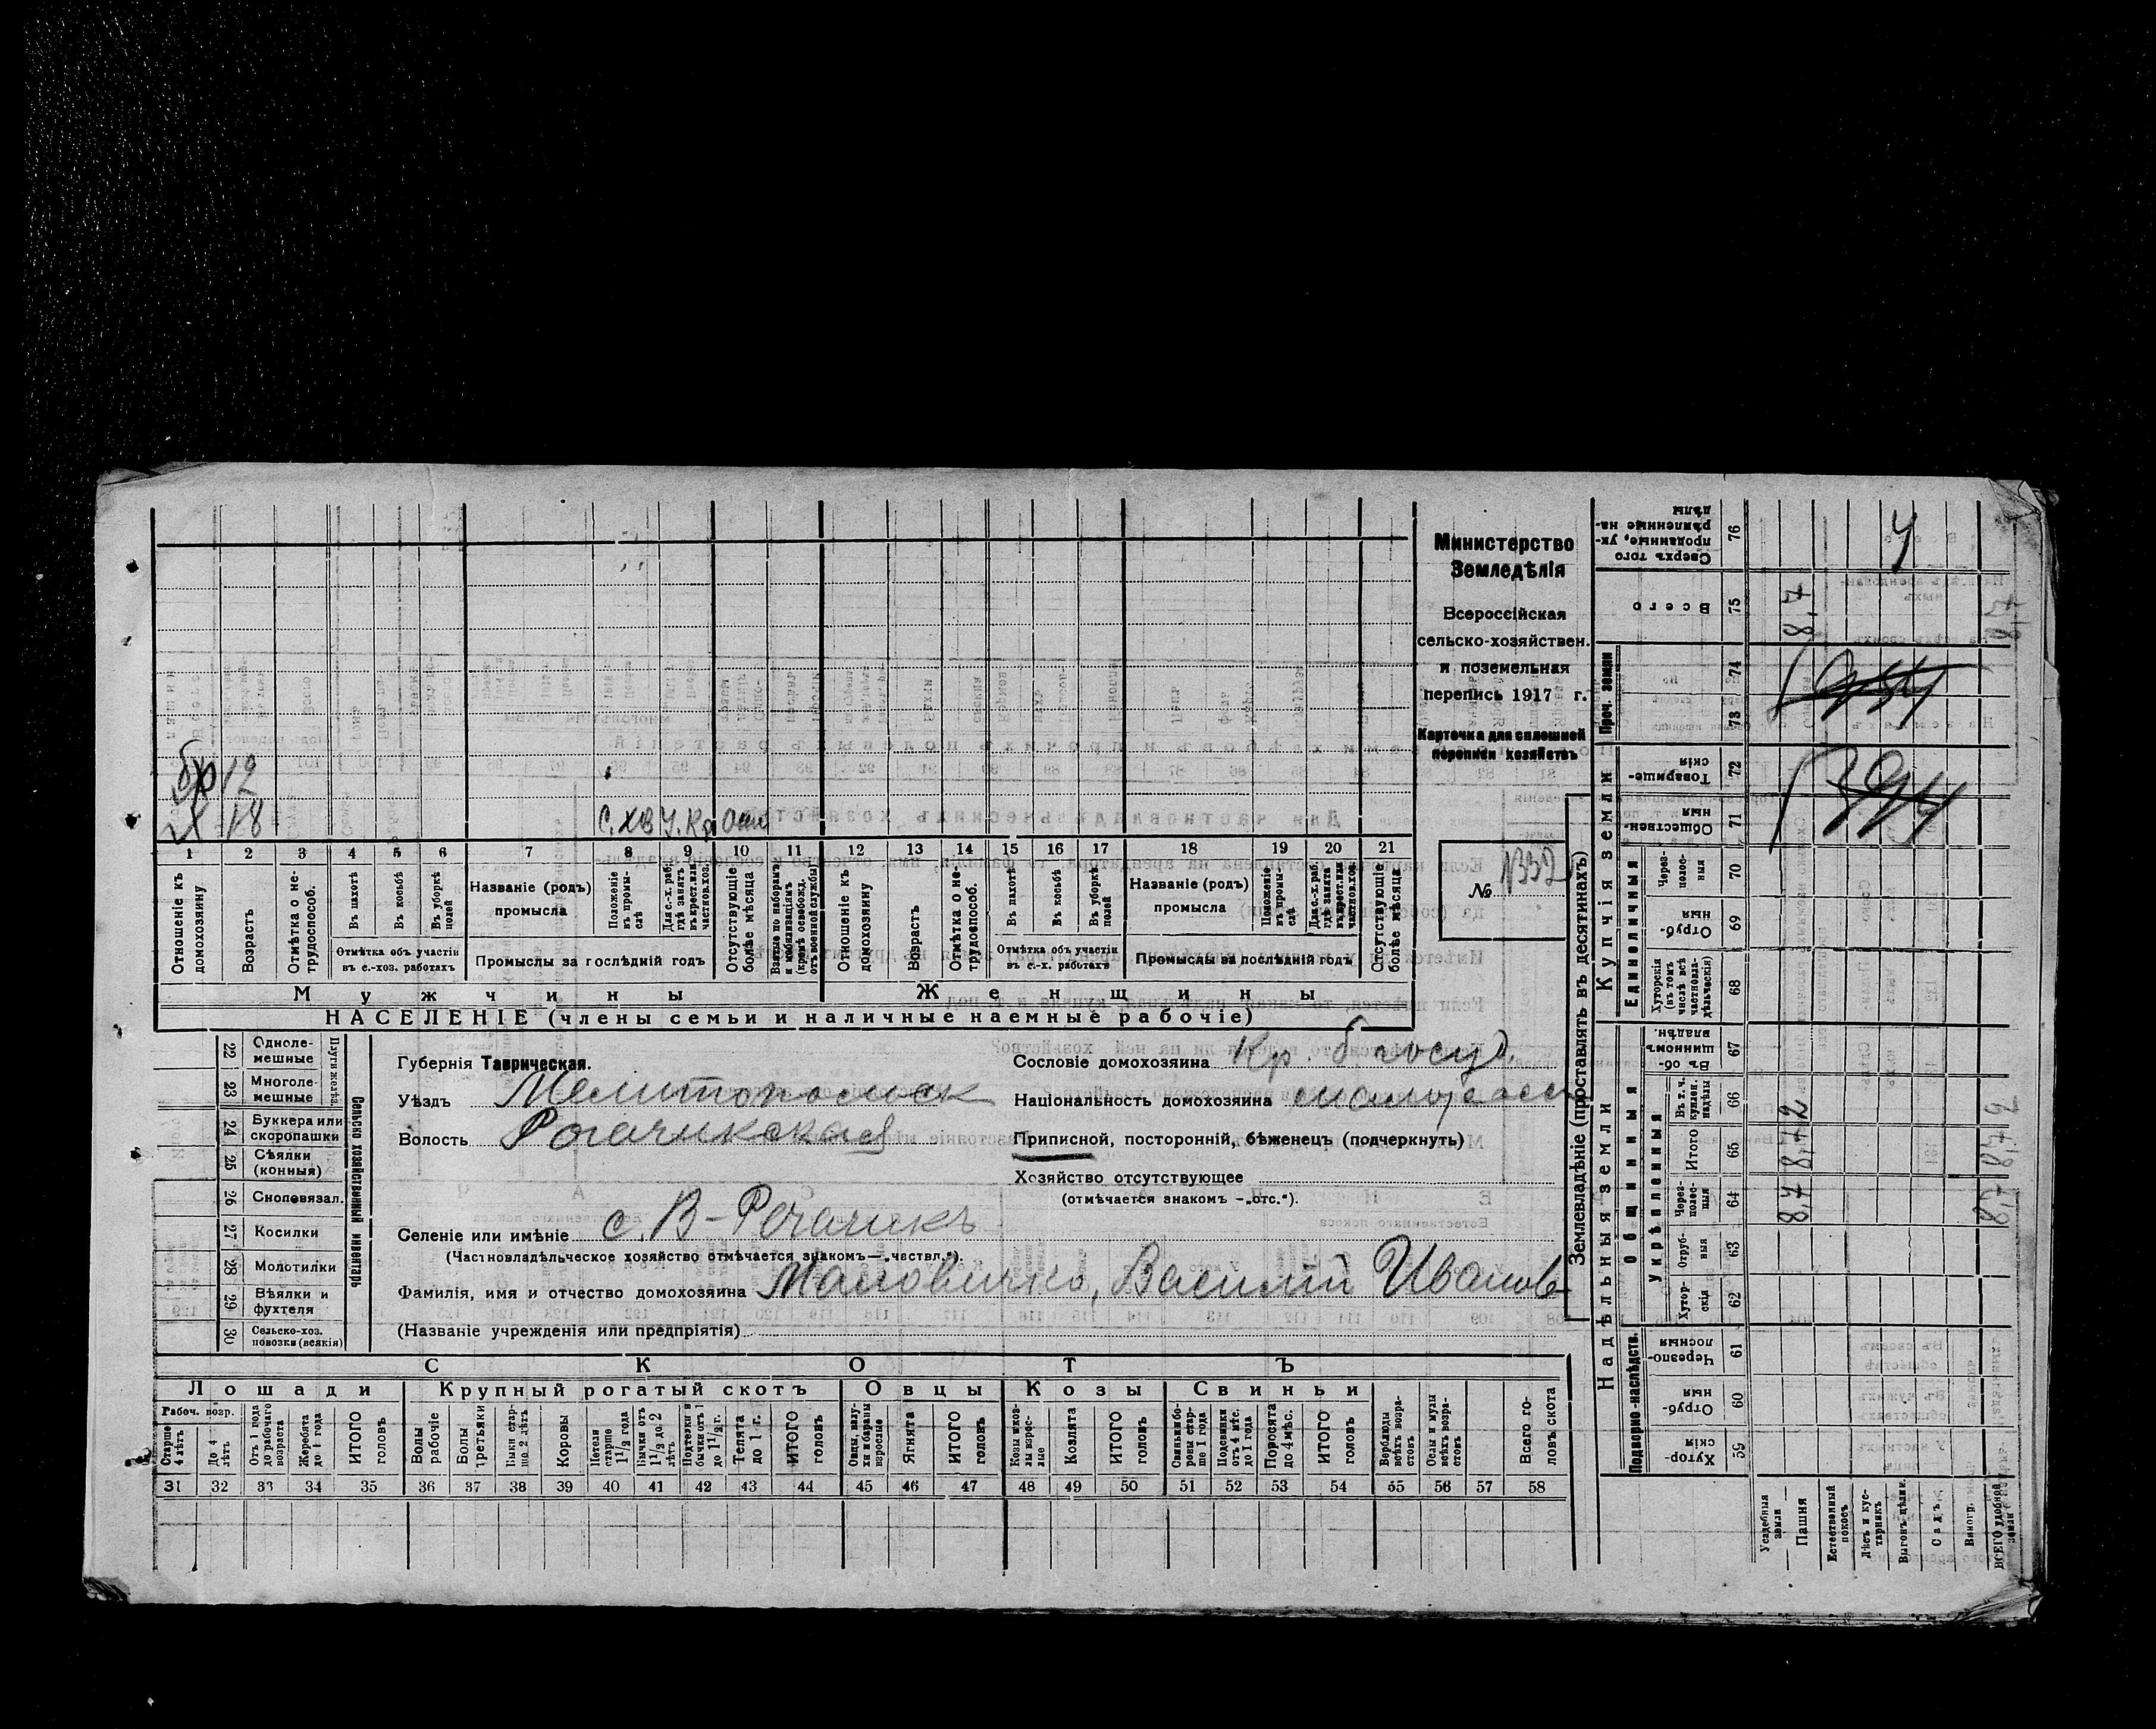 Министерство
Земледѣлія
Всероссійская
сельско-хозяйствен.
и поземельная
перепись 1917 г.
Карточка для сплошной
переписи хозяйствъ
№ 1332
бр 12
х 18
С.ХВ У. Кр
1 2 3 4 5 6 7 8 9 10 11 12 13 14 15 16 17 18 19 20 21
Отношеніе къ домохозяину
Возрастъ
Отмѣтка о нетрудоспособ.
Въ пахотѣ
Въ косьбѣ
Въ уборкѣ полей
Отмѣтка объ участіи въ с.-хоз. работахъ
Названіе (родъ) промысла
Положеніе въ промыслѣ
Для с.-х. раб. гдѣ занятъ въ крест. или частнов. хоз.
Промыслы за послѣдній годъ
Отсутствующіе болѣе мѣсяца
Взятые по наборамъ и мобилизаціямъ (кромѣ освобожд. отъ военной службы)
Отношеніе къ домохозяину
Возрастъ
Отмѣтка о нетрудоспособ.
Въ пахотѣ
Въ косьбѣ
Въ уборкѣ полей
Отмѣтка объ участіи въ с.-х. работахъ
Названіе (родъ) промысла
Положеніе въ промыслѣ
Для с.-х. раб. гдѣ занята въ крест. или частнов. хоз.
Промыслы за послѣдній годъ
Отсутствующіе болѣе мѣсяца
Мужчины Женщины
НАСЕЛЕНІЕ (члены семьи и наличные наемные рабочіе)
Сельско хозяйственный инвентарь
Плуги желѣз.
22 Одноле-мешные
23 Многоле-мешные
24 Буккера или скоропашки
25 Сѣялки (конныя)
26 Сноповязал.
27 Косилки
28 Молотилки
29 Вѣялки и фухтеля
30 Сельско-хоз. повозки (всякія)
Губернія Таврическая.
Уѣздъ Мелитопольск
Волость Рогачикская
Селеніе или имѣніе с. В-Рогачикъ
(Частновладѣльческое хозяйство отмѣчается знакомъ—„частвл.“).
Фамилія, имя и отчество домохозяина Маловичко, Василій Иванов
(Названіе учрежденія или предпріятія)
Сословіе домохозяина Кр. б госуд.
Національность домохозяина малоросс
Приписной, посторонній, бѣженецъ (подчеркнуть)
Хозяйство отсутствующее
(отмѣчается знакомъ —„отс.“).
СКОТЪ
Лошади Крупный рогатый скотъ Овцы Козы Свиньи
Рабоч. возр.
Старше 4 лѣтъ
До 4 лѣтъ
Отъ 1 года до рабочаго возраста
Жеребята до 1 года
ИТОГО головъ
Волы рабочіе
Волы третьяки
Быки старше 2 лѣтъ
Коровы
Нетели старше 1 1/2 года
Бычки отъ 1 1/2 до 2 лѣтъ
Подтелки и бычки отъ 1 до 1 1/2 г.
Телята до 1 г.
ИТОГО головъ
Овцы, валухи и бараны взрослые
Ягнята
ИТОГО головъ
Козы и козлы взрослые
Козлята
ИТОГО головъ
Свиньи и боровы старше 1 года
Подсвинки отъ 4 мѣс. до 1 года
Поросята до 4 мѣс.
ИТОГО головъ
Верблюды всѣхъ возрастовъ
Ослы и мулы всѣхъ возрастовъ
Всего головъ скота
31 32 33 34 35 36 37 38 39 40 41 42 43 44 45 46 47 48 49 50 51 52 53 54 55 56 57 58
Землевладѣніе (проставлять въ десятинахъ)
Надѣльныя земли
Купчія земли
Проч. земли
Подворно-наслѣдств.
Общинныя
укрѣпленныя
Единоличныя
Сверхъ того проданные, укрѣпленные надѣлы 76 4
Всего 75 8,7
74
73
Товарищескія 72
Общественныя 71
Черезполосныя 70
Отрубныя 69
Хуторскія (въ томъ числѣ всѣ частновладѣльческія) 68
Въ общинномъ владѣн. 67
Въ т. ч. куплен. надѣлы 66
Итого 65 8,42
Черезполосныя 64 8,7
Отрубныя 63
Хуторскія 62
Черезполосныя 61
Отрубныя 60
Хуторскія 59
Усадебная земля
Пашня
Естественный покосъ
Лѣсъ и кустарникъ
Выгонъ, цѣлин.
Садъ
Виногр.
ВСЕГО удобной земли
8,7
8,42
8,7